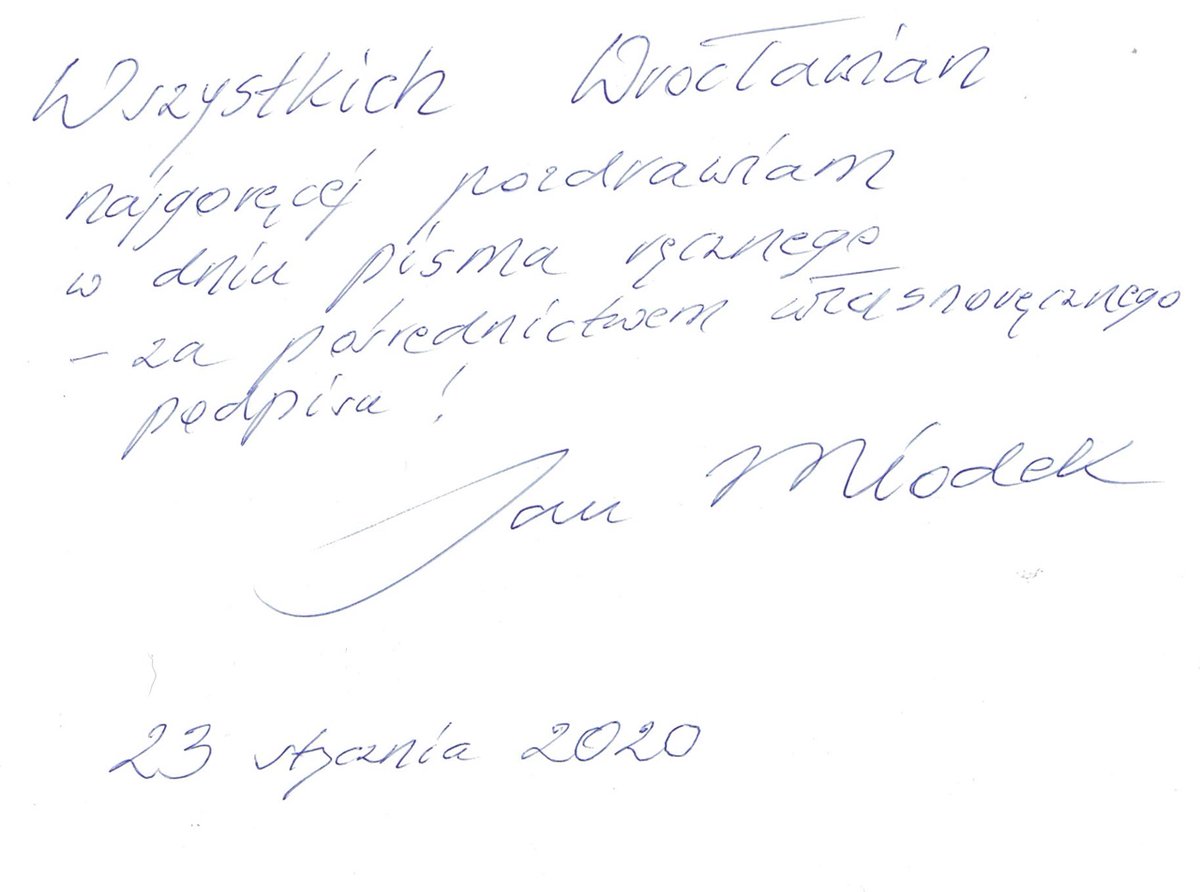 Wszystkich Wrocławian
najgoręcej pozdrawiam
w dniu pisma ręcznego
– za pośrednictwem własnoręcznego
podpisu!
Jan Miodek
23 stycznia 2020